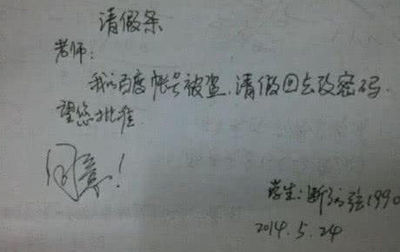 请假条
老师:
我的百度帐号被盗,请假回去改密码.
望您批准.
同意!
学生:断弦1990
2014.5.24